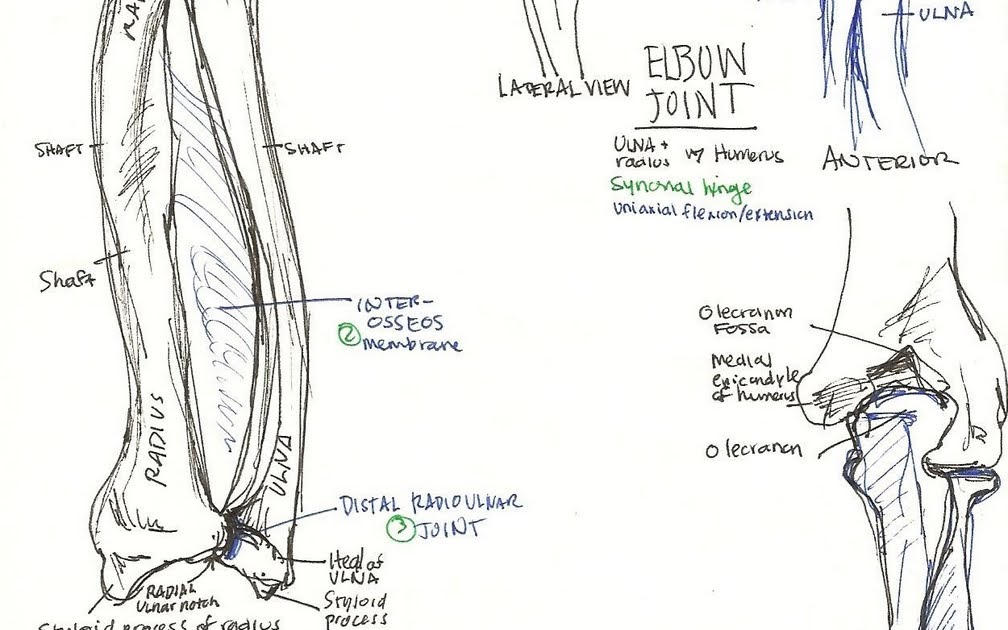 RA
SHAFT
SHAFT
Shaft
INTER-
OSSEOS
② membrane
RADIUS
ULNA
DISTAL RADIOULNAR
③ JOINT
Head of
ULNA
RADIAL
ulnar notch
Styloid
process
Styloid process of radius
LATERAL VIEW
ELBOW
JOINT
ULNA +
radius w/ Humerus
Synovial hinge
uniaxial flexion/extension
ULNA
ANTERIOR
Olecranon
Fossa
Medial
epicondyle
of humerus
Olecranon